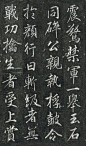 震驚禁軍一舉玉石
同碎公親執桴鼓令
於顏行曰斬級者無
戰功擒生者受上賞